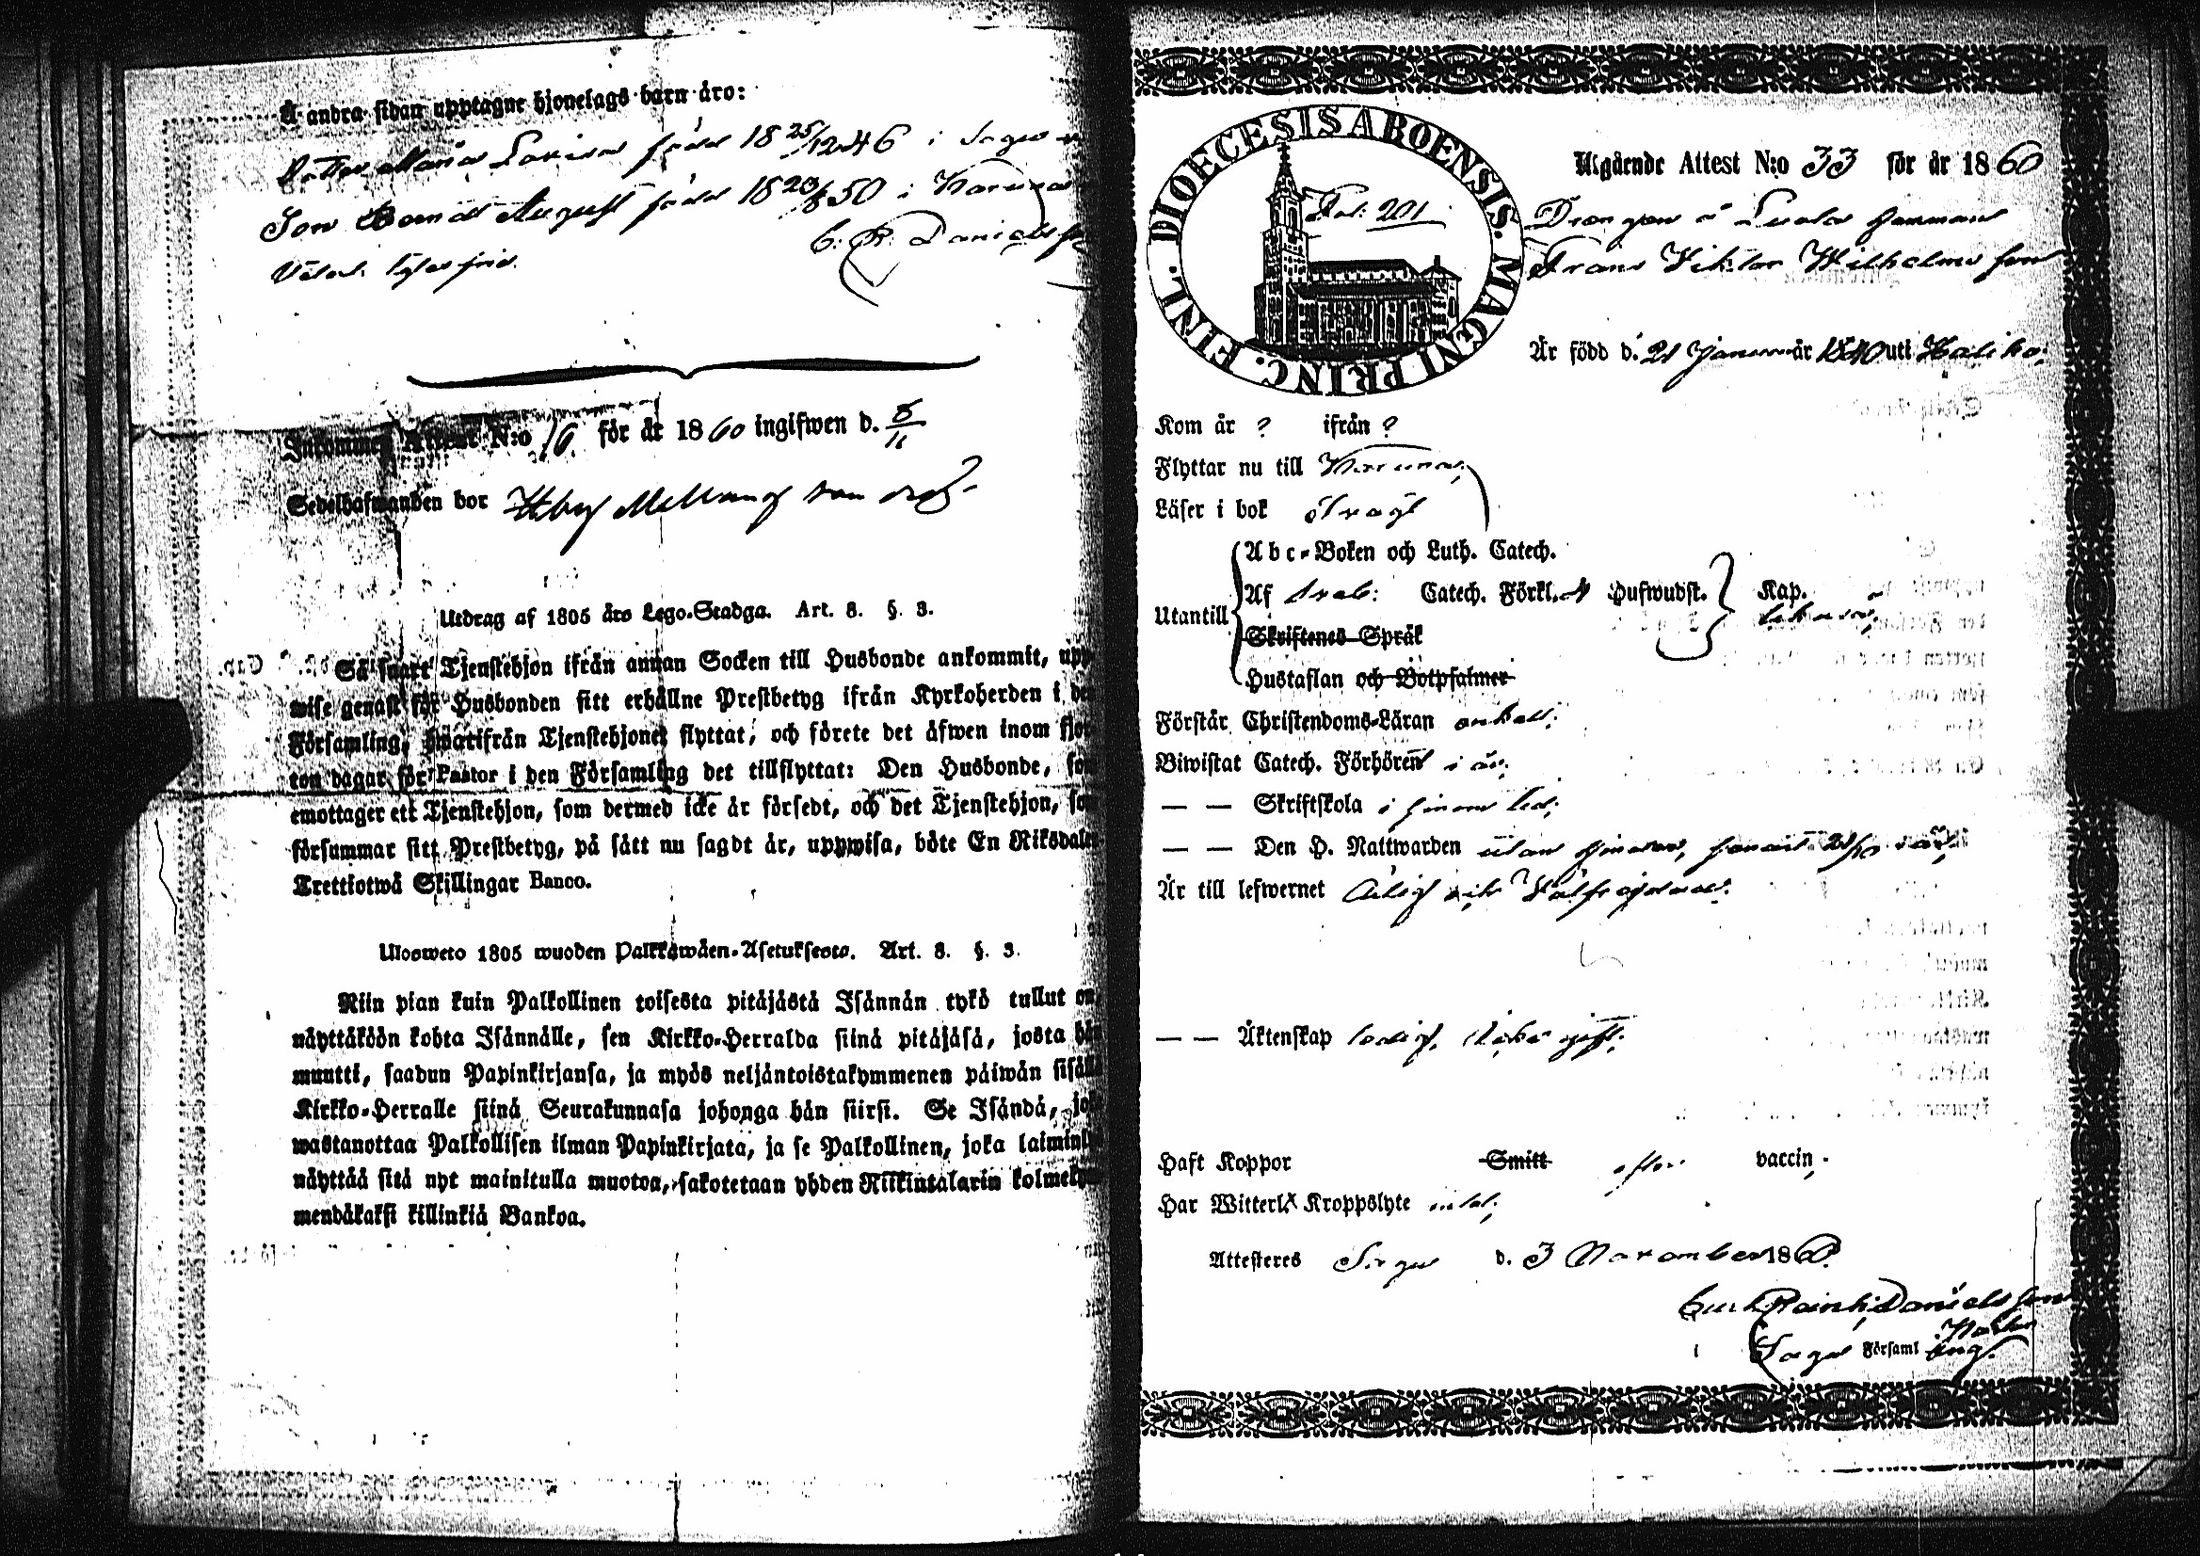 Å andra sidan upptagne hjonelags barn äro:
Dotter Maria Lovisa född 18 25/12 46 i Sagu
Son Berndt August född 18 20/8 50 i Karuna
C. R. Danielsson
Incommen Attest N:o 16 för år 1860 ingifwen d. 8/11
Sedelhafwanden bor
Utdrag af 1805 års Lego-Stadga. Art. 8. §. 3.
Så snart Tjenstehjon ifrån annan Socken till Husbonde ankommit, upp-
wise genast för Husbonden sitt erhållne Prestbetyg ifrån Kyrkoherden i den
Församling, hwarifrån Tjenstehjonet flyttat, och förete det äfwen inom fjor-
ton dagar för Pastor i den Församling det tillflyttat: Den Husbonde, som
emottager ett Tjenstehjon, som dermed icke är försedt, och det Tjenstehjon, som
försummar sitt Prestbetyg, på sätt nu sagdt är, uppwisa, böte En Riksdaler
Trettiotwå Skillingar Banco.
Ulosweto 1805 wuoden Palkkawäen-Asetuksesta. Art. 8. §. 3.
Niin pian kuin Palkollinen toisesta pitäjästä Isännän tykö tullut on,
näyttäköön kohta Isännälle, sen Kirkko-Herralda siinä pitäjäsä, josta hän
muutti, saadun Papinkirjansa, ja myös neljäntoistakymmenen päiwän sisällä
Kirkko-Herralle siinä Seurakunnasa johonga hän siirsi. Se Isändä, joka
wastanottaa Palkollisen ilman Papinkirjata, ja se Palkollinen, joka laiminlyö
näyttää sitä nyt mainitulla muotoa, sakotetaan yhden Riikintalarin kolmekym-
mendäkaksi killinkiä Bankoa.
DIOECESIS ABOENSIS. MAGNI PRINC. FINL.
Fol: 201
Utgående Attest N:o 33 för år 1860
Drängen
Frans Viktor Wilhelmsson
Är född d. 21 Januari år 1840 uti Haliko.
Kom år ? ifrån ?
Flyttar nu till Karuna,
Läser i bok trögt
Utantill
Abc-Boken och Luth. Catech.
Af Catech. Förkl. Hufwudst. Kap.
Skriftenes Språk
Hustaflan och Botpsalmer
Förstår Christendoms-Läran enkelt;
Biwistat Catech. Förhören i år;
— — Skriftskola
— — Den H. Nattwarden
Är till lefwernet
— — Äktenskap ledig,
Haft Koppor Smitt efter vaccin.
Har Witterl. Kroppslyte intet;
Attesteres Sagu d. 3 November 1860.
Danielsson
i Sagu Församling.